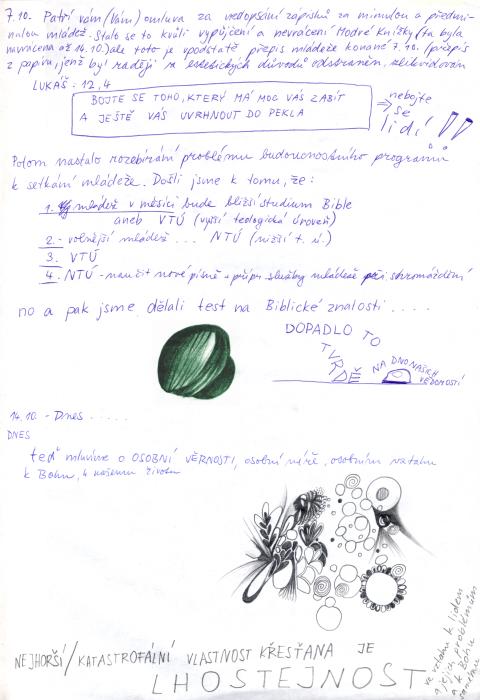 7.10. Patří vám (Vám) omluva za nedopsání zápisků za minulou a předmi-
nulou mládež. Stalo se to kvůli vypůjčení a nevrácení Modré Knížky (ta byla
navrácena až 14.10.) ale toto je v podstatě přepis mládeže konané 7.10. /přepis
z papíru, jenž byl raději z estetických důvodů odstraněn, zlikvidován
LUKÁŠ: 12,4
BOJTE SE TOHO, KTERÝ MÁ MOC VÁS ZABÍT
A JEŠTĚ VÁS UVRHNOUT DO PEKLA
⇒ nebojte
se
lidí!!
Potom nastalo rozebírání problému budoucnostního programů
k setkání mládeže. Došli jsme k tomu, že:
1. mládež v měsíci bude bližší studium Bible
aneb VTÚ (vyšší teologická úroveň)
2. - volnější mládež ... NTÚ (nižší t. ú.)
3. VTÚ
4. NTÚ - naučit nové písně + přípr. služby mládeže při shromáždění
no a pak jsme dělali test na Biblické znalosti ....
DOPADLO TO
TVRDĚ
NA DNO NAŠICH
VĚDOMOSTÍ
14.10. - Dnes .....
DNES
teď mluvíme o OSOBNÍ VĚRNOSTI, osobní víře, osobním vztahu
k Bohu, k našemu životu
NEJHORŠÍ/KATASTROFÁLNÍ VLASTNOST KŘESŤANA JE
LHOSTEJNOST
ve vztahu k lidem
a jejich problémům
k Bohu